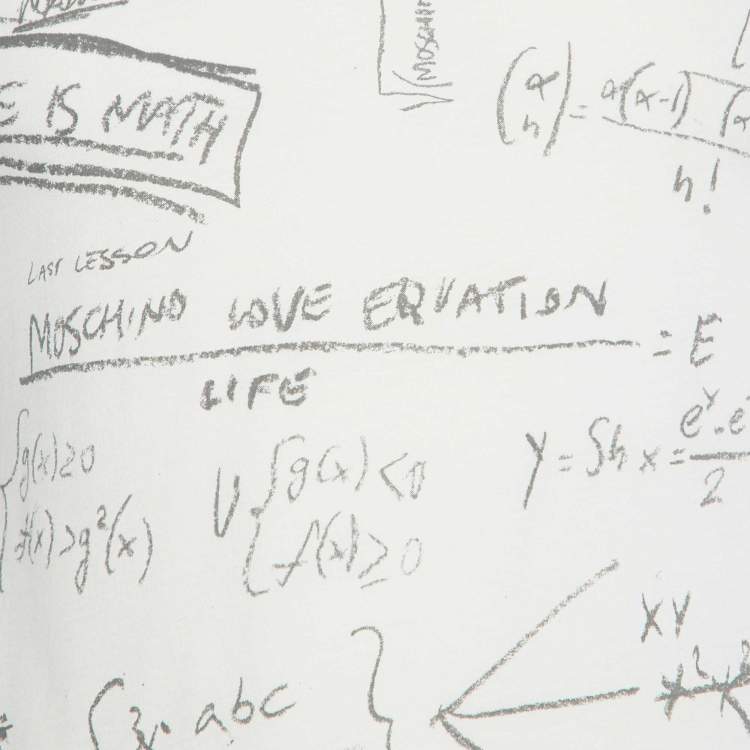 E IS MATH
√MOSCHIN
(α n) = α(α-1)
n!
LAST LESSON
MOSCHINO LOVE EQUATION
= E
LIFE
g(x)≥0
f(x)>g²(x)
V { g(x)<0
f(x)≥0
y = Sh x = e^x - e
2
xy
abc